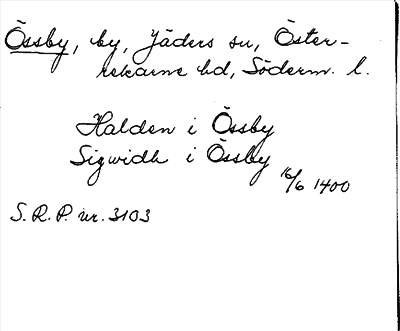 Össby, by, Jäders sn, Öster-
rekarne hd, Söderm. l.
Halden i Össby
Sigwidh i Össby
16/6 1400
S.R.P. nr. 3103